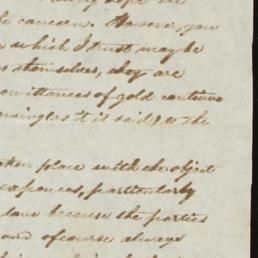 concern. However, you
which I trust may be
themselves, they are
remittances of gold continue
it is said) to the
place with the object
expences, particularly
because the parties
and of course always